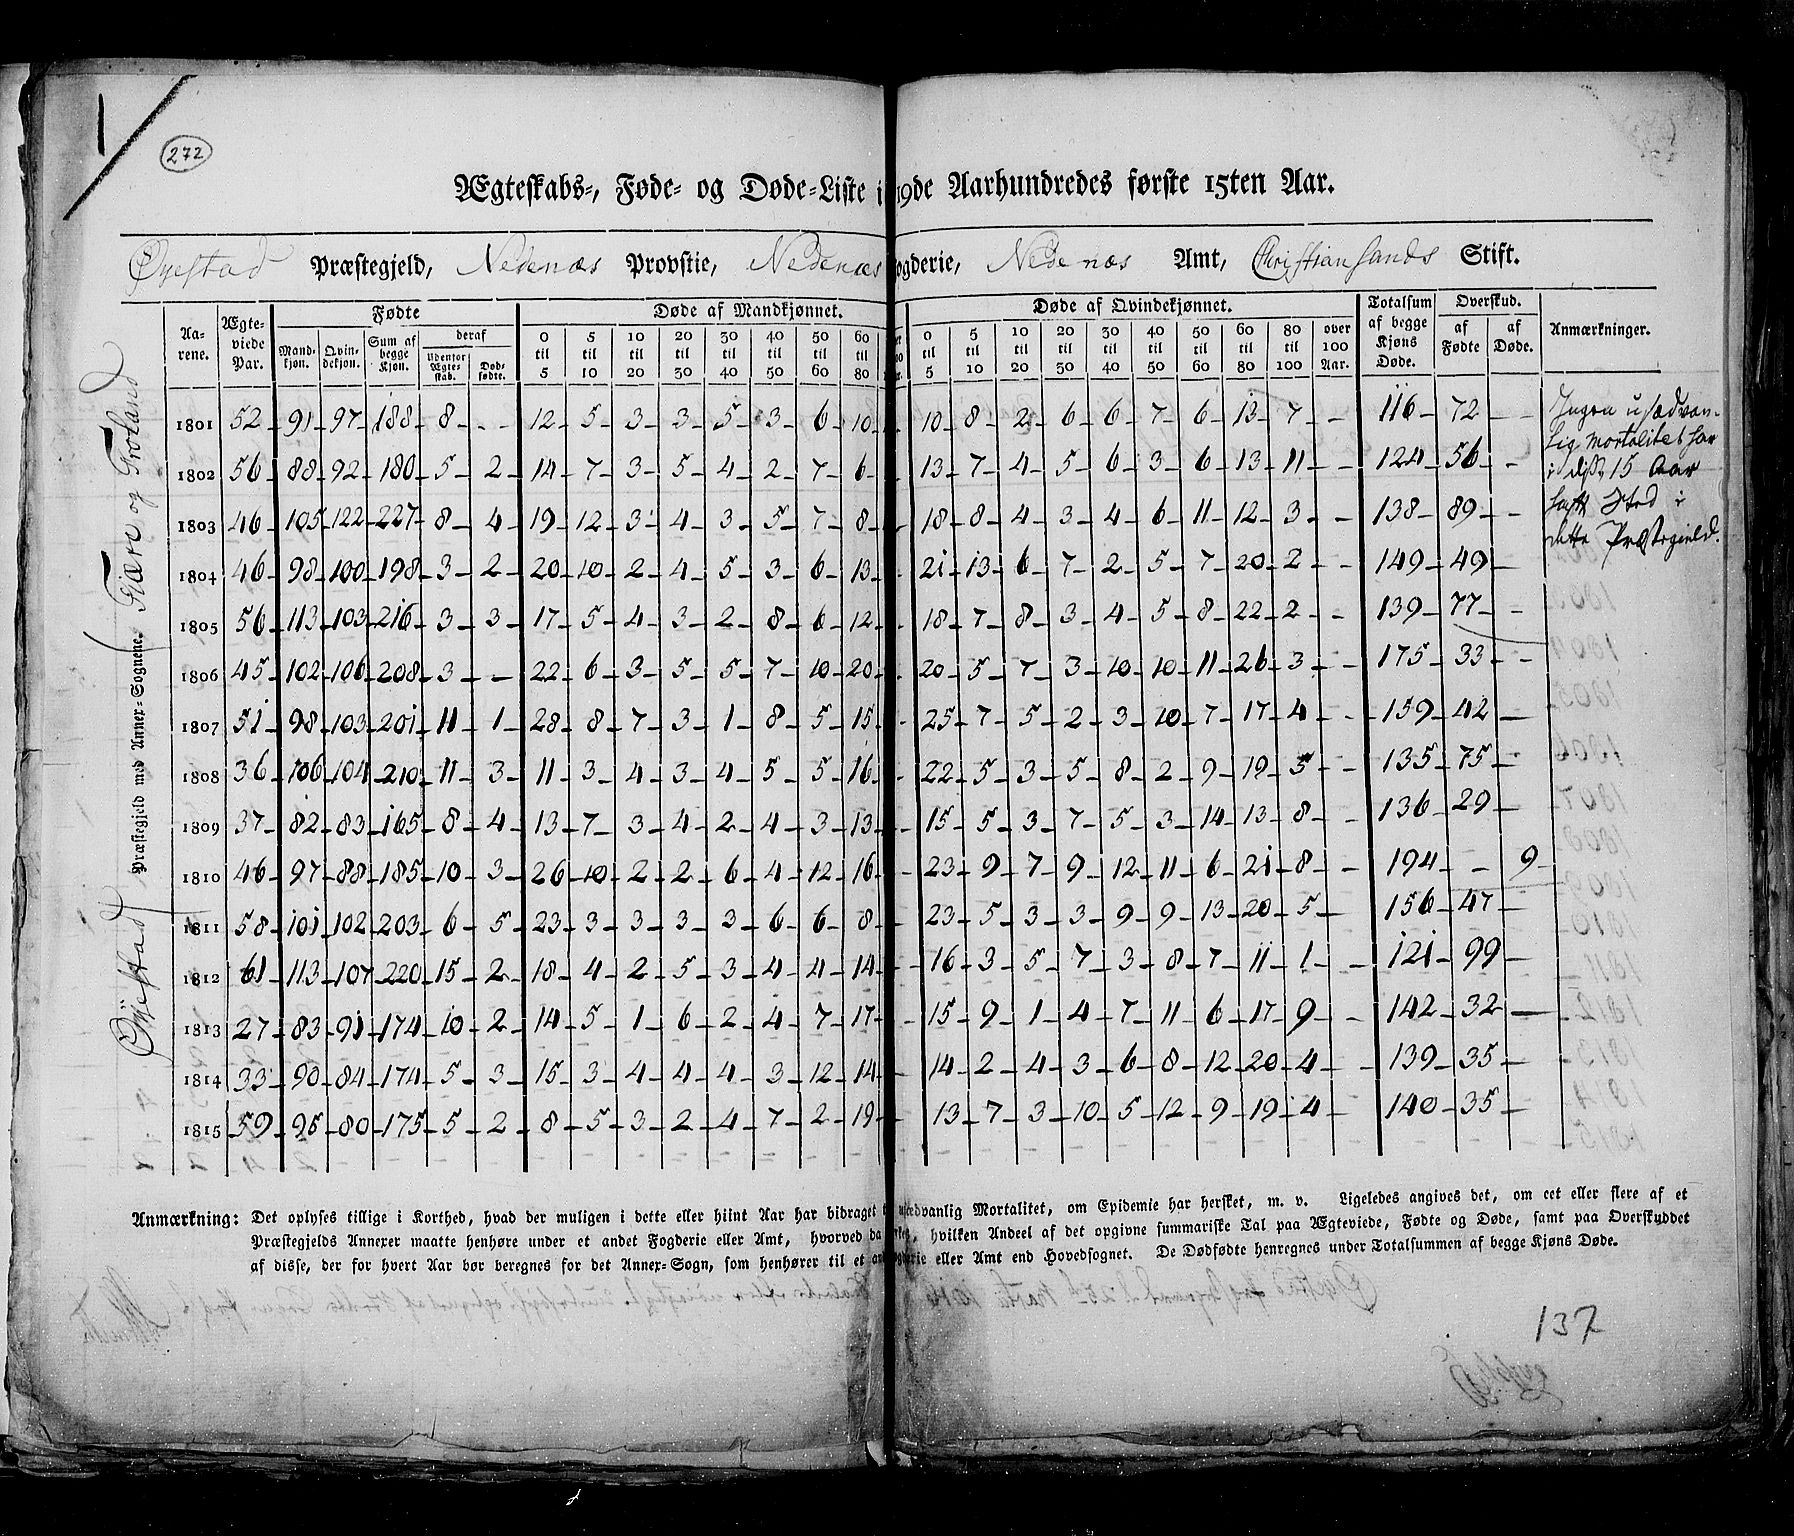 272
Ægteskabs-, Føde- og Døde-Liste i 19de Aarhundredes første 15ten Aar.
Øyestad Præstegjeld, Nedenæs Provstie, Nedenæs ogderie, Nedenæs Amt, Christiansands Stift.
Øyestad Præstegjeld med Annex-Sognene. Fiære og Froland
Aarene. Ægteviede Par. Fødte Døde af Mandkjønnet. Døde af Qvindekjønnet. Totalsum af begge Kjøns Døde. Overskud. Anmærkninger.
Mandkjøn. Qvindekjøn. Sum af begge Kjøn. deraf Udenfor Ægteskab. Dødfødte. 0 til 5 5 til 10 10 til 20 20 til 30 30 til 40 40 til 50 50 til 60 60 til 80 0 til 5 5 til 10 10 til 20 20 til 30 30 til 40 40 til 50 50 til 60 60 til 80 80 til 100 over 100 Aar. af Fødte af Døde.
1801 52 91 97 188 8 - - 12 5 3 3 5 3 6 10 10 8 2 6 6 7 6 13 7 - 116 72 -
1802 56 88 92 180 5 2 14 7 3 5 4 2 7 6 13 7 4 5 6 3 6 13 11 - 124 56 -
1803 46 105 122 227 8 4 19 12 3 4 3 5 7 8 18 8 4 3 4 6 11 12 3 - 138 89 -
1804 46 98 100 198 3 2 20 10 2 4 5 3 6 13 21 13 6 7 2 5 7 20 2 - 149 49 -
1805 56 113 103 216 3 3 17 5 4 3 2 8 6 12 18 7 8 3 4 5 8 22 2 - 139 77 -
1806 45 102 106 208 3 - 22 6 3 5 5 7 10 20 20 5 7 3 10 10 11 26 3 - 175 33 -
1807 51 98 103 201 11 1 28 8 7 3 1 8 5 15 25 7 5 2 3 10 7 17 4 - 159 42 -
1808 36 106 104 210 11 3 11 3 4 3 4 5 5 16 22 5 3 5 8 2 9 19 5 - 135 75 -
1809 37 82 83 165 8 4 13 7 3 4 2 4 3 13 15 5 3 7 5 3 14 13 8 - 136 29 -
1810 46 97 88 185 10 3 26 10 2 2 6 4 12 16 23 9 7 9 12 11 6 21 8 - 194 - 9
1811 58 101 102 203 6 5 23 3 3 3 3 6 6 8 23 5 3 3 9 9 13 20 5 - 156 47 -
1812 61 113 107 220 15 2 18 4 2 5 3 4 4 14 16 3 5 7 3 8 7 11 1 - 121 99 -
1813 27 83 91 174 10 2 14 5 1 6 2 4 7 17 15 9 1 4 7 11 6 17 9 - 142 32 -
1814 33 90 84 174 5 3 15 3 4 4 4 3 12 14 14 2 4 3 6 8 12 20 4 - 139 35 -
1815 59 95 80 175 5 2 8 5 3 2 4 7 2 19 13 7 3 10 5 12 9 19 4 - 140 35 -
Ingen usædvan-
lig mortalitet har
i disse 15 Aar
havt Sted i
dette Præstegield.
Anmærkning: Det oplyses tillige i Korthed, hvad der muligen i dette eller hiint Aar har bidraget t usædvanlig Mortalitet, om Epidemie har hersket, m. v. Ligeledes angives det, om eet eller flere af et
Præstegjelds Annexer maatte henhøre under et andet Fogderie eller Amt, hvorved da hvilken Andeel af det opgivne summariske Tal paa Ægteviede, Fødte og Døde, samt paa Overskuddet
af disse, der for hvert Aar bør beregnes for det Annex-Sogn, som henhører til et an gderie eller Amt end Hovedsognet. De Dødfødte henregnes under Totalsummen af begge Kjøns Døde.
137